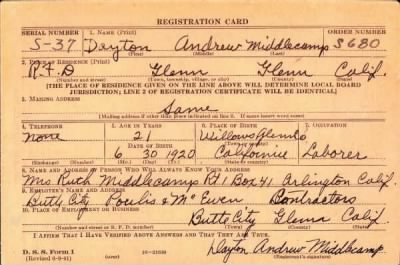 REGISTRATION CARD
SERIAL NUMBER 1. NAME (Print) ORDER NUMBER
S-37 Dayton Andrew Middlecamp S680
(First) (Middle) (Last)
2. PLACE OF RESIDENCE (Print)
R.F.D Glenn Glenn Calif.
(Number and street) (Town, township, village, or city) (County) (State)
[THE PLACE OF RESIDENCE GIVEN ON THE LINE ABOVE WILL DETERMINE LOCAL BOARD
JURISDICTION; LINE 2 OF REGISTRATION CERTIFICATE WILL BE IDENTICAL.]
3. MAILING ADDRESS
Same
[Mailing address if other than place indicated on line 2. If same insert word same]
4. TELEPHONE 5. AGE IN YEARS 6. PLACE OF BIRTH 7. OCCUPATION
none 21 Willows Glenn Co
DATE OF BIRTH
6 30 1920 California Laborer
(Exchange) (Number) (Mo.) (Day) (Yr.) (State or country)
8. NAME AND ADDRESS OF PERSON WHO WILL ALWAYS KNOW YOUR ADDRESS
Mrs Ruth Middlecamp Rd 1 Box 41 Arlington Calif.
9. EMPLOYER'S NAME AND ADDRESS
Butte City & McEwen Contractors
10. PLACE OF EMPLOYMENT OR BUSINESS
Butte City Glenn Calif.
(Number and street or R. F. D. number) (Town) (County) (State)
I AFFIRM THAT I HAVE VERIFIED ABOVE ANSWERS AND THAT THEY ARE TRUE.
D. S. S. Form 1
(Revised 6-9-41) Dayton Andrew Middlecamp